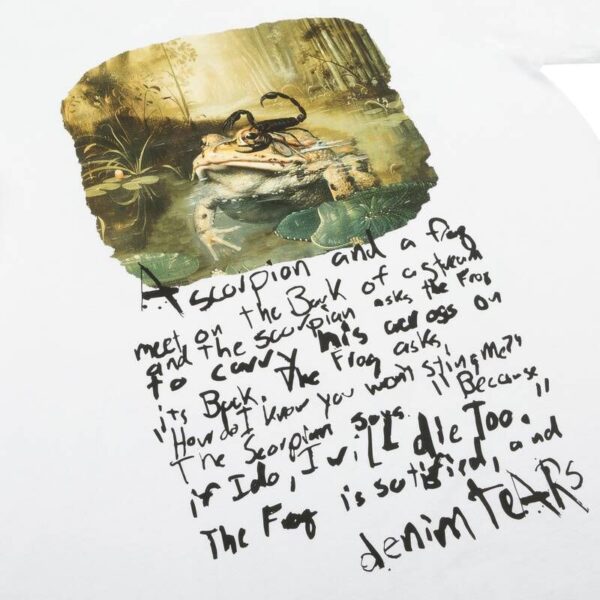 A scorpion and a frog
meet on the Bank of a stream
and the scorpian asks the Frog
to carry his across on
its Back. The Frog asks,
"How do I know you won't sting me?"
The Scorpian says. "Because
if I do, I will die Too."
The Frog is satisfied, and
denim TEARS